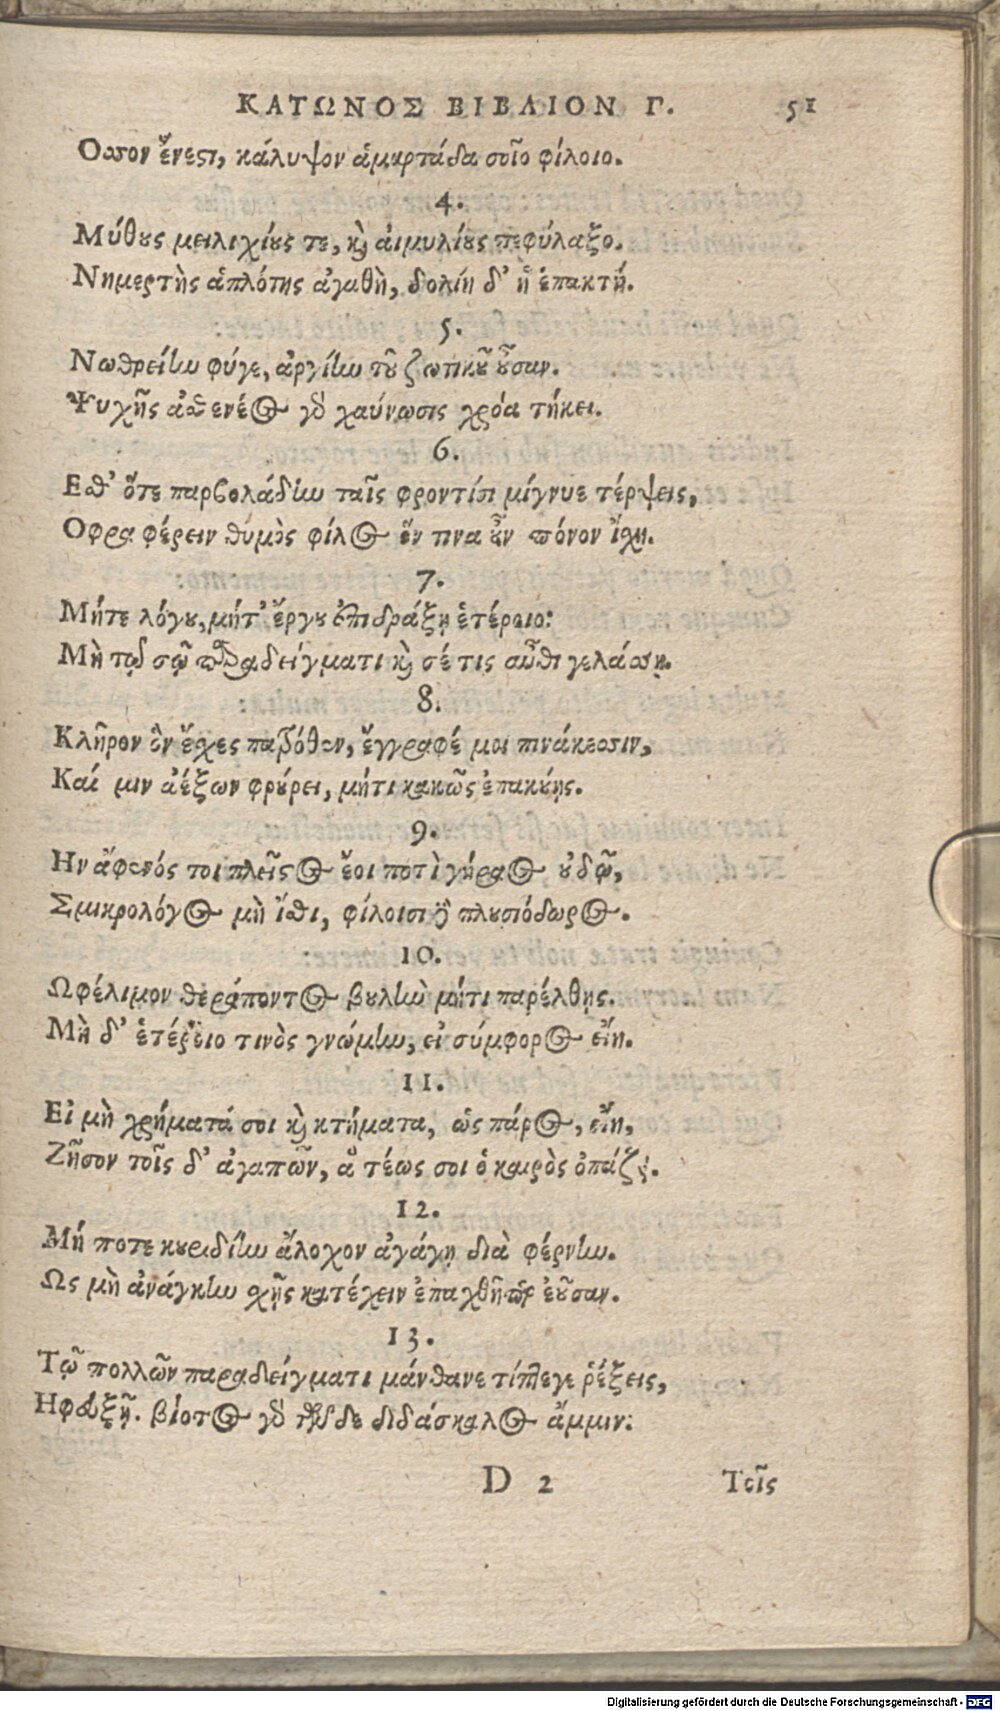 ΚΑΤΩΝΟΣ ΒΙΒΛΙΟΝ Γ. 51
Οσσον ἔνεστι, κάλυψον ἁμαρτάδα σοῖο φίλοιο.
4.
Μύθους μειλιχίους τε, καὶ αἱμυλίους πεφύλαξο.
Νημερτὴς ἁπλότης ἀγαθὴ, δολίη δ' ἡ ἐπακτή.
5.
Νωθρείην φύγε, ἀργίην τοῦ ζωτικοῦ οὖσαν.
Ψυχῆς ἀσθενέος γὸ χαύνωσις χρόα τήκει.
6.
Εσθ' ὅτε παρβολάδην ταῖς φροντίσι μίγνυε τέρψεις,
Οφρα φέρειν θυμὸς φίλος ἕν τινα οὖν πόνον ἴσχῃ.
7.
Μήτε λόγου, μήτ' ἔργου ἐπιδράξῃ ἑτέροιο:
Μὴ τῷ σῷ παραδείγματι καὶ σέ τις αὖθι γελάσσῃ.
8.
Κλῆρον ὃν ἔχες πατρόθεν, ἔγγραφέ μοι πινάκεσσιν,
Καί μιν ἀέξων φρούρει, μήτι κακῶς ἐπακούῃς.
9.
Ην ἄφενός τοι πλεῖστος ἔοι ποτὶ γήραος οὐδῷ,
Σμικρολόγος μὴ ἴσθι, φίλοισι δὲ πλουσιόδωρος.
10.
Ωφέλιμον θεράποντος βουλὴν μήτι παρέλθῃς.
Μὴ δ' ἑτέροιο τινὸς γνώμην, εἰ σύμφορος εἴη.
11.
Εἰ μὴ χρήματά σοι καὶ κτήματα, ὡς πάρος, εἴη,
Ζῆσον τοῖς δ' ἀγαπῶν, ἃ τέως σοι ὁ καιρὸς ὀπάζει.
12.
Μή ποτε κουριδίην ἄλοχον ἀγάγῃ διὰ φέρνην.
Ως μὴ ἀνάγκην σχῇς κατέχειν ἐπαχθῆ περ ἐοῦσαν.
13.
Τῷ πολλῶν παραδείγματι μάνθανε τίπτεγε ῥέξεις,
Ηφεύξῃ. βίοτος γὸ τῆσδε διδάσκαλος ἄμμιν.
D 2 Τοῖς
Digitalisierung gefördert durch die Deutsche Forschungsgemeinschaft - DFG